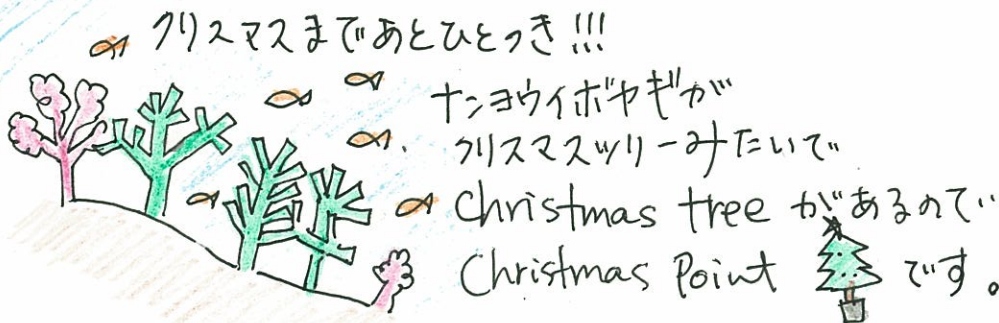 クリスマスまであとひとつき!!!
ナンヨウイボヤギが
クリスマスツリーみたいで
Christmas treeがあるので
Christmas Point です。